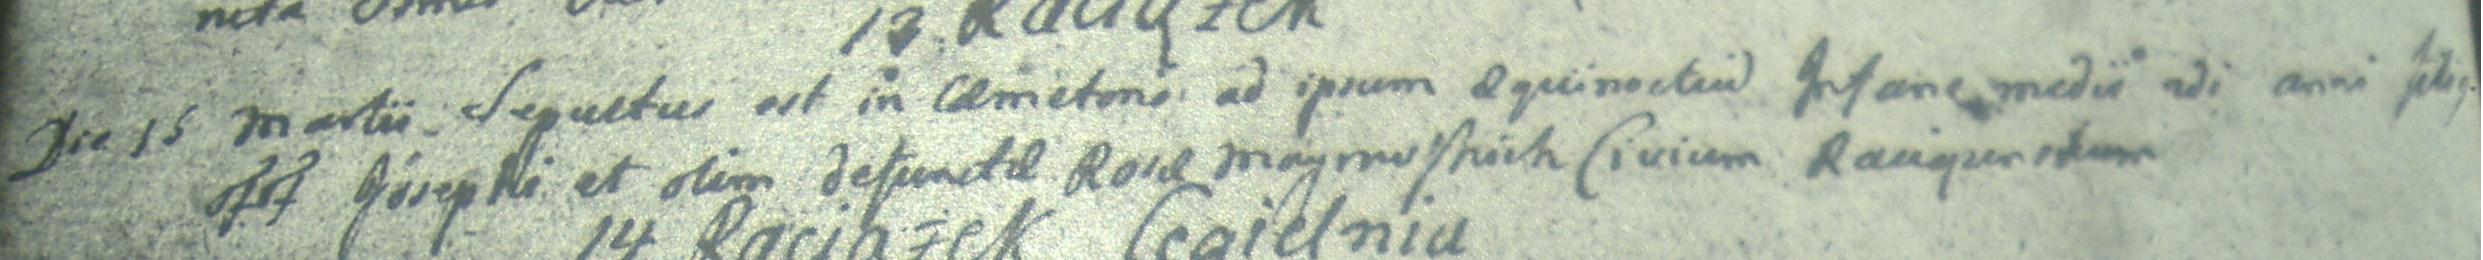 13. Raciążek
Die 15 Martii Sepultus est in Cæmeterio ad ipsum Æquinoctiu Infans medii anni filiq
Josephi et olim defunctæ Rosæ Civium Raciązensium
14 Raciążek Cegielnia